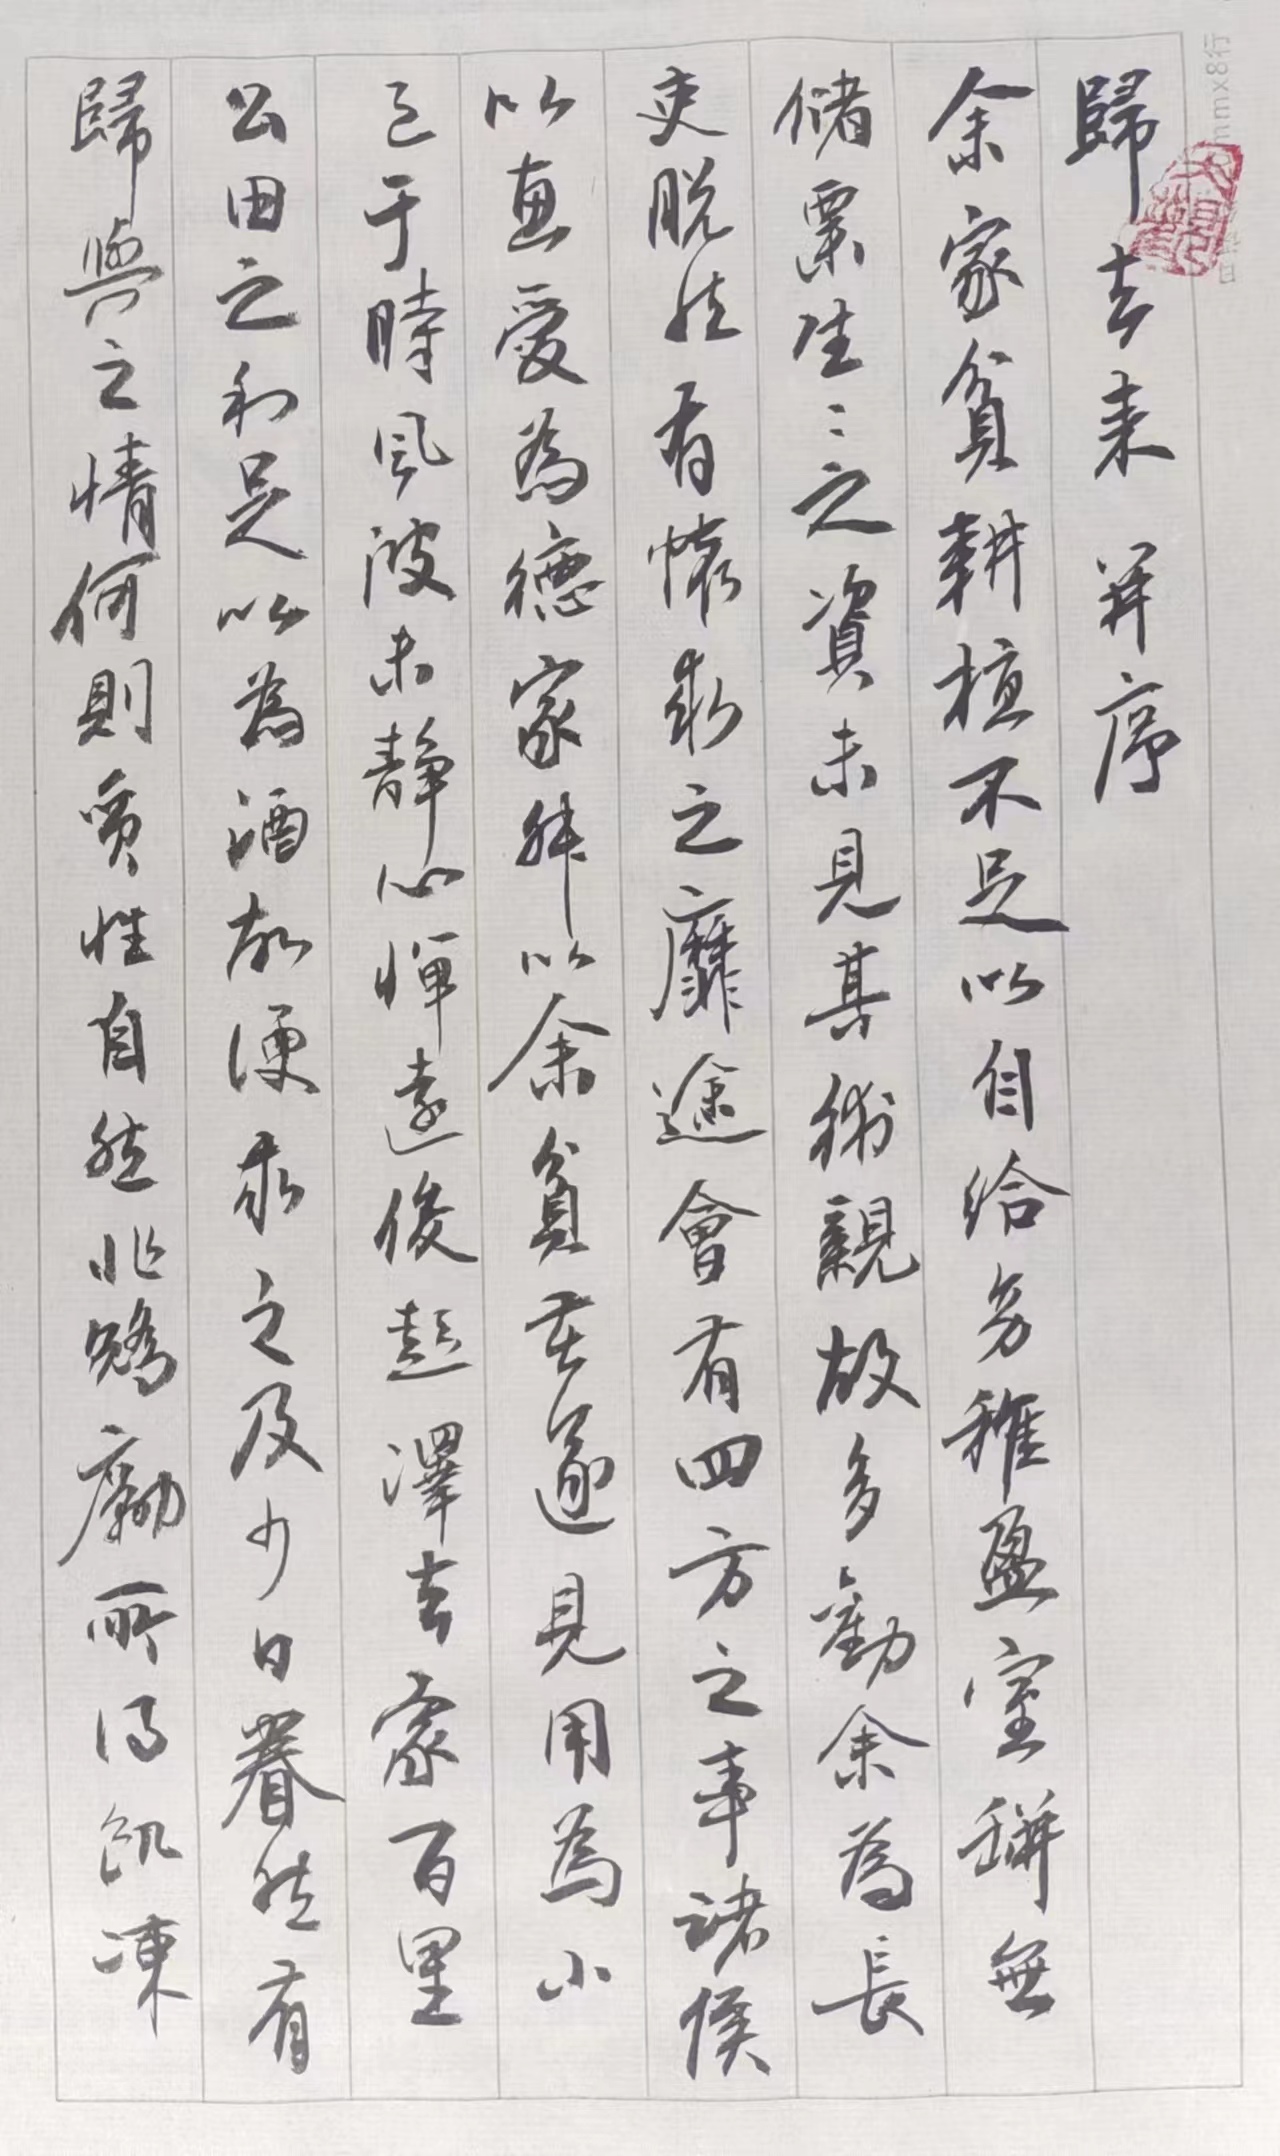 歸去来并序
余家貧耕植不足以自給幼稚盈室缾無
储粟生〻之資未見其術親故多勸余為長
吏脱然有懷求之靡途會有四方之事諸侯
以惠愛為德家叔以余貧苦遂見用為小
邑于時風波未静心惮遠役彭澤去家百里
公田之利足以為酒故便求之及少日眷然有
歸與之情何則質性自然非矯勵所得飢凍
mmx8行